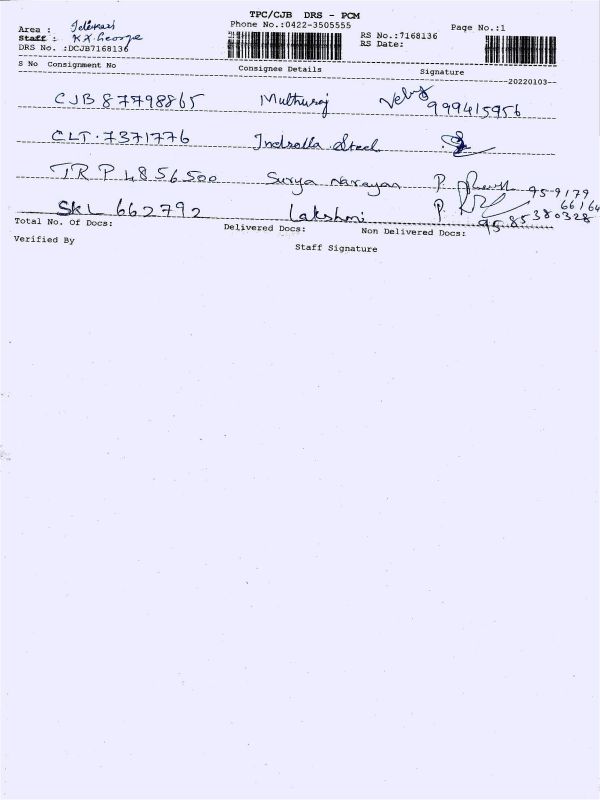 TPC/CJB DRS - PCM
Area :
Phone No.:0422-3505555
Page No.:1
Staff : K.X. George
RS No.:7168136
DRS No. :DCJB7168136
RS Date:
S No Consignment No Consignee Details Signature
20220103
CJB 87798865 Muthuraj 999415956
CLT. 7371776 Indrolla Steel
TRP 4856500 Surya Narayan P. 95-9179
66164
SKL 662792 Lakshmi P. 9585380328
Total No. Of Docs: Delivered Docs: Non Delivered Docs:
Verified By Staff Signature